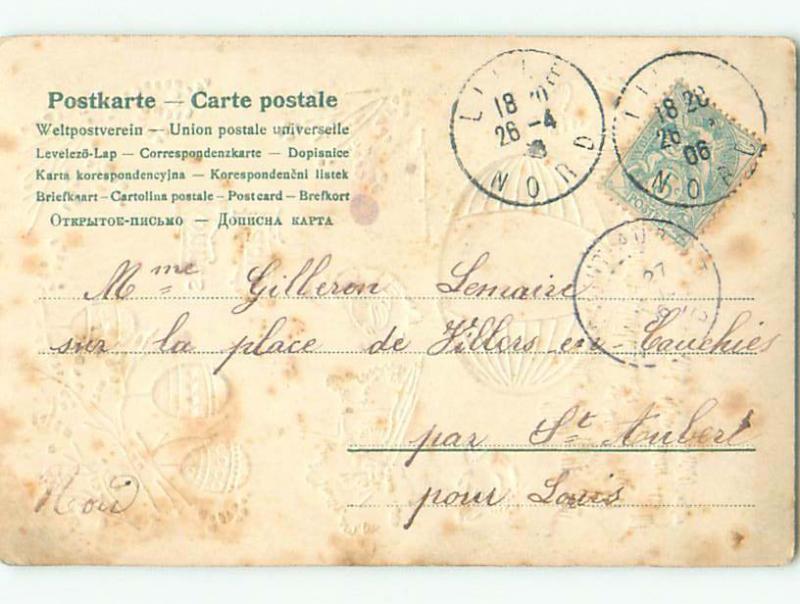 Postkarte — Carte postale
Weltpostverein — Union postale universelle
Levelező-Lap — Correspondenzkarte — Dopisnice
Karta korespondencyjna — Korespondenční listek
Briefkaart — Cartolina postale — Postcard — Brefkort
Открытое-письмо — Дописна карта
LILLE
18 20
26 -4
NORD
LILLE
18 20
26
06
NORD
POSTES
27
Mme Gilleron Lemaire
sur la place de Villers en-Cauchies
par St Aubert
pour Louis
Nord